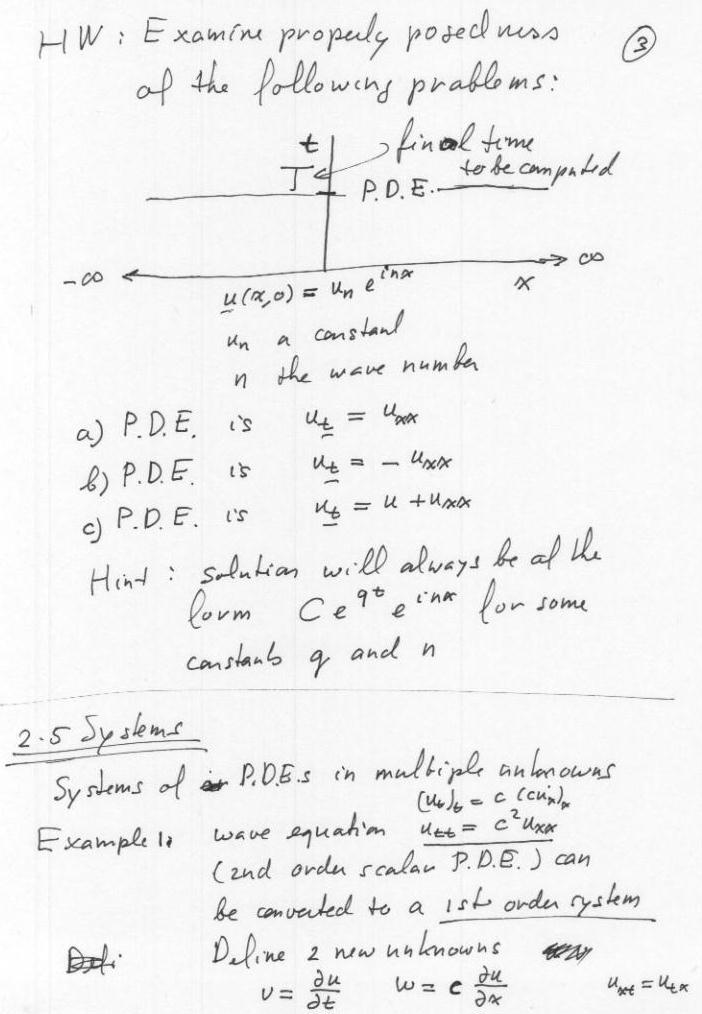 HW: Examine properly posedness
③
of the following problems:
t
final time
T
to be computed
P.D.E.
-∞
∞
u(x,0) = uₙ e^{inx}
x
uₙ a constant
n the wave number
a) P.D.E. is u_t = u_xx
b) P.D.E. is u_t = - u_xx
c) P.D.E. is u_t = u + u_xx
Hint: solution will always be of the
form C e^{qt} e^{inx} for some
constants q and n
2.5 Systems
Systems of P.D.E.s in multiple unknowns
(u_t)_t = c (cu_x)_x
Example 1: wave equation u_tt = c² u_xx
(2nd order scalar P.D.E.) can
be converted to a 1st order system
Define 2 new unknowns
v = ∂u/∂t w = c ∂u/∂x u_xt = u_tx